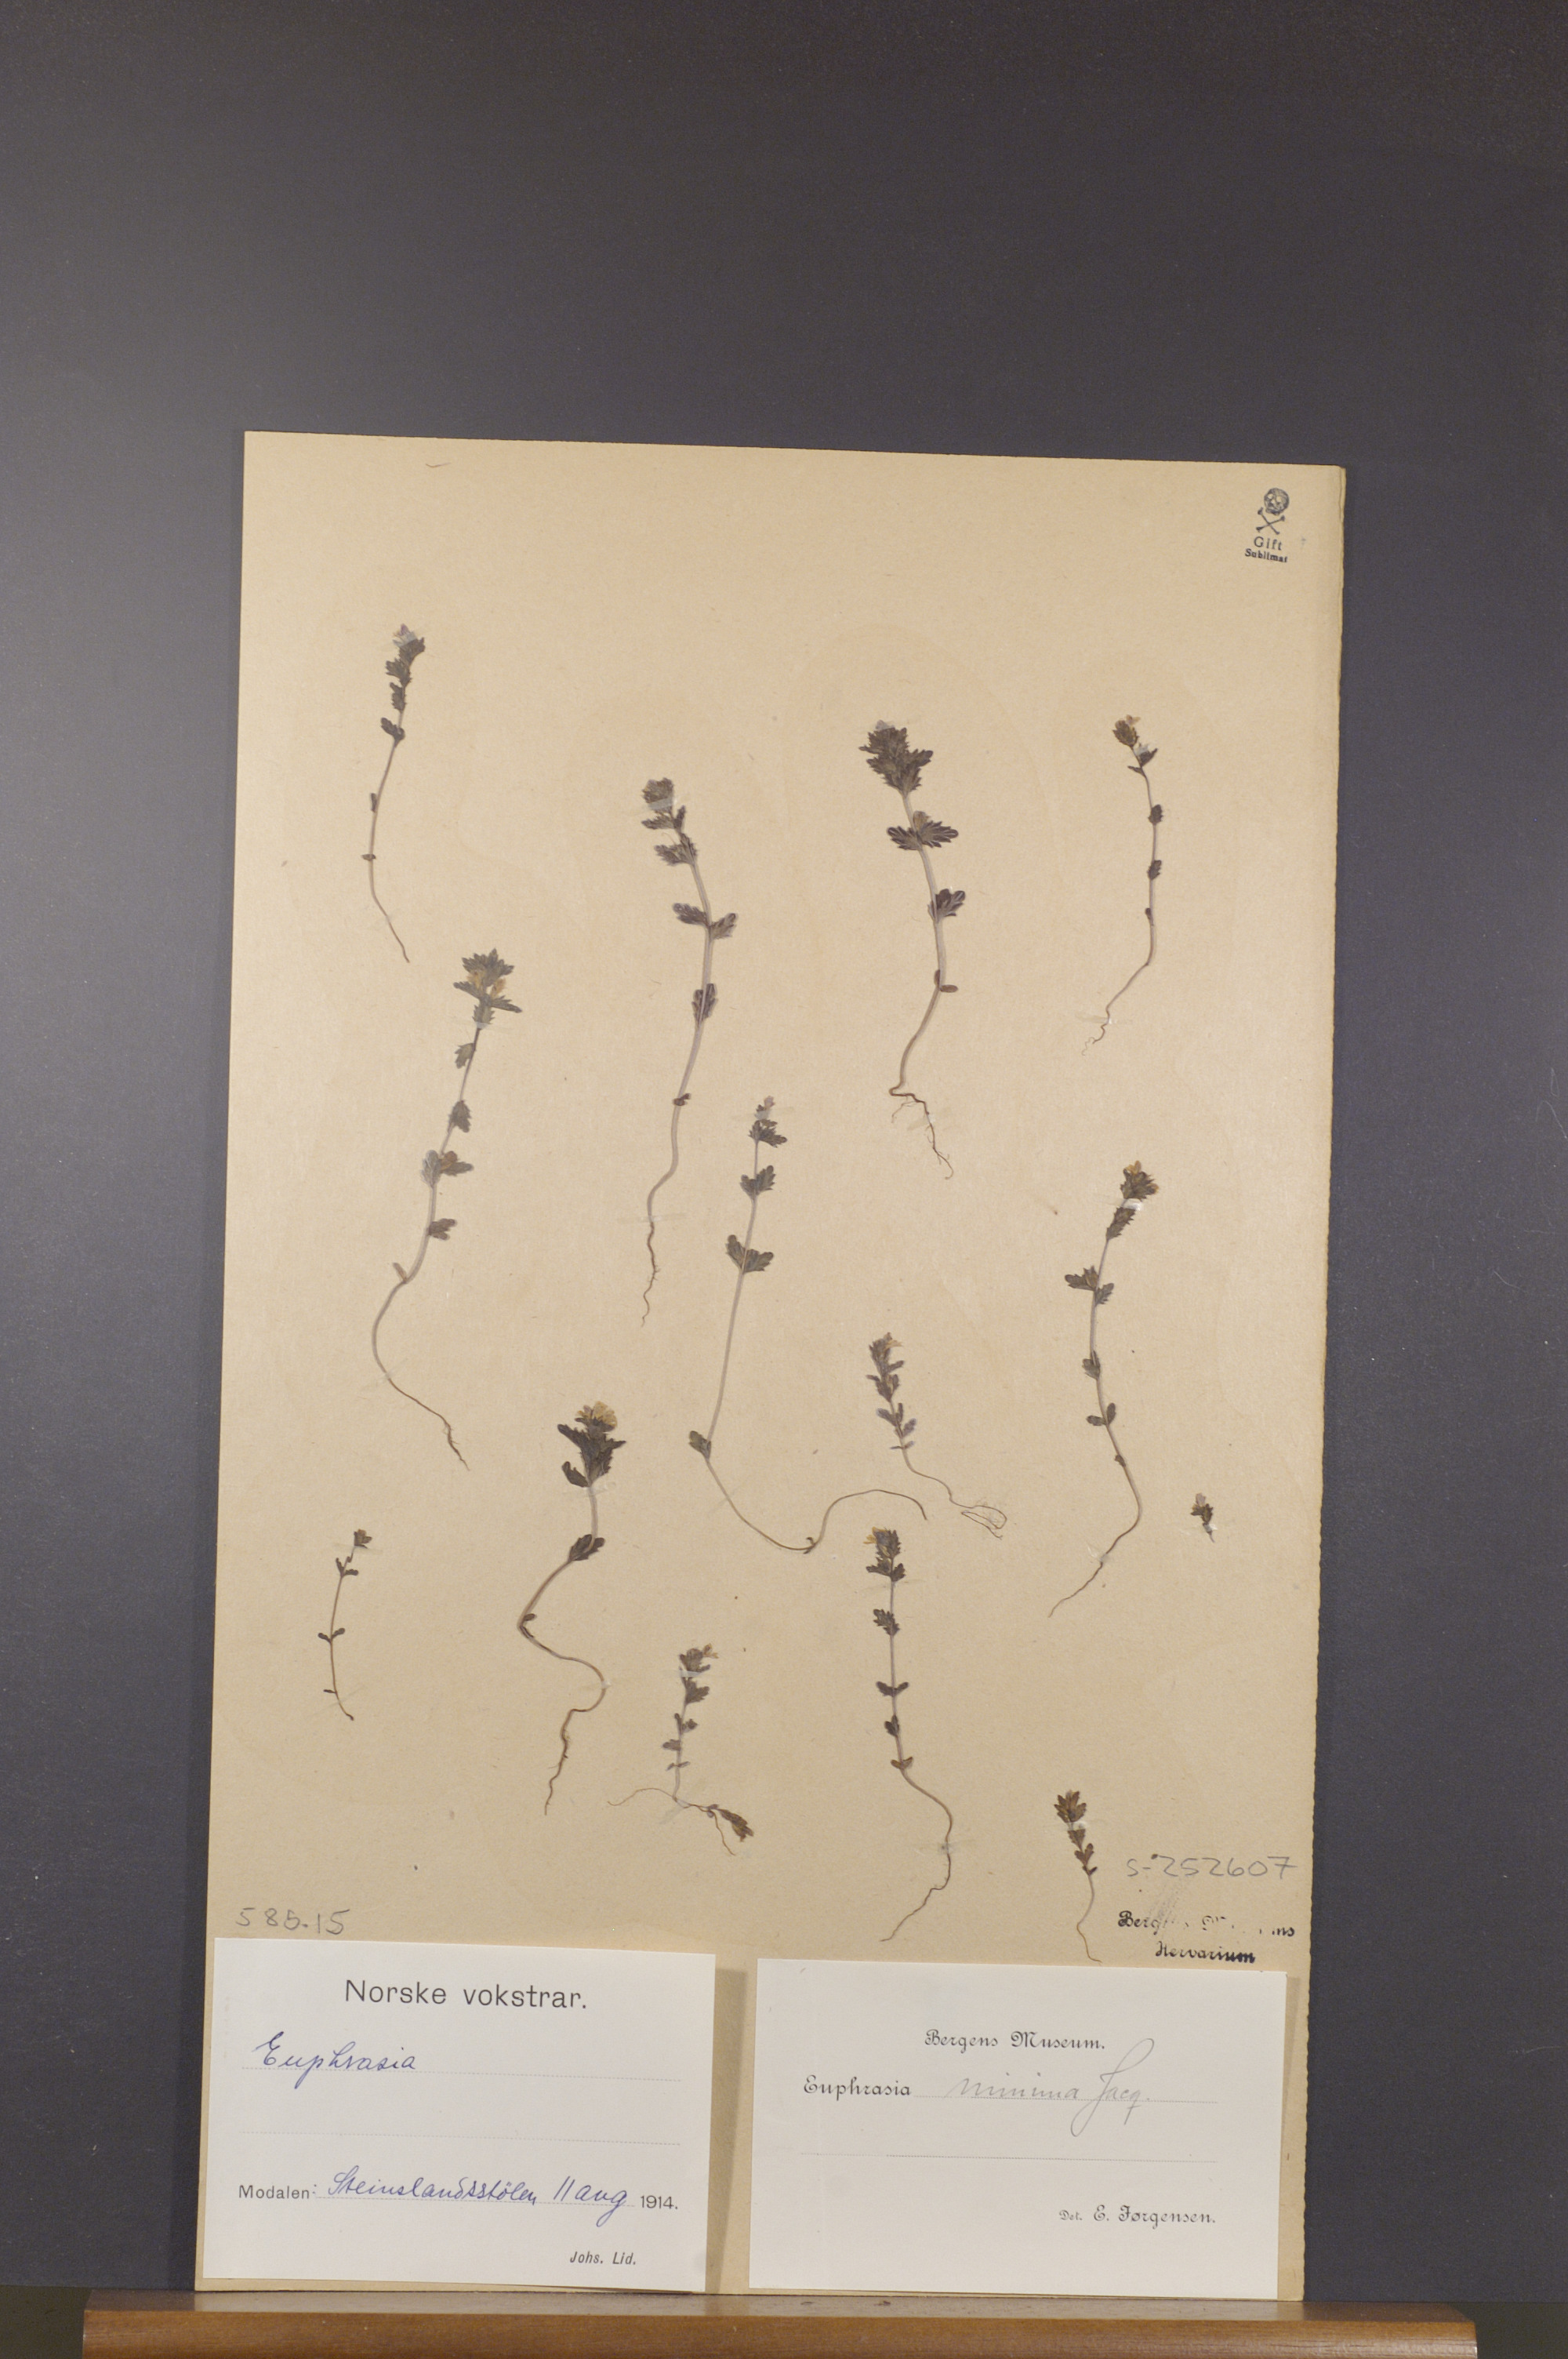 Gift
Sublimat
S-252607
Herbarium
585.15
Norske vokstrar.
Euphrasia
Modalen: Steinslandsstölen 11 aug 1914.
Johs. Lid.
Bergens Museum.
Euphrasia minima Jacq.
Det. E. Jørgensen.